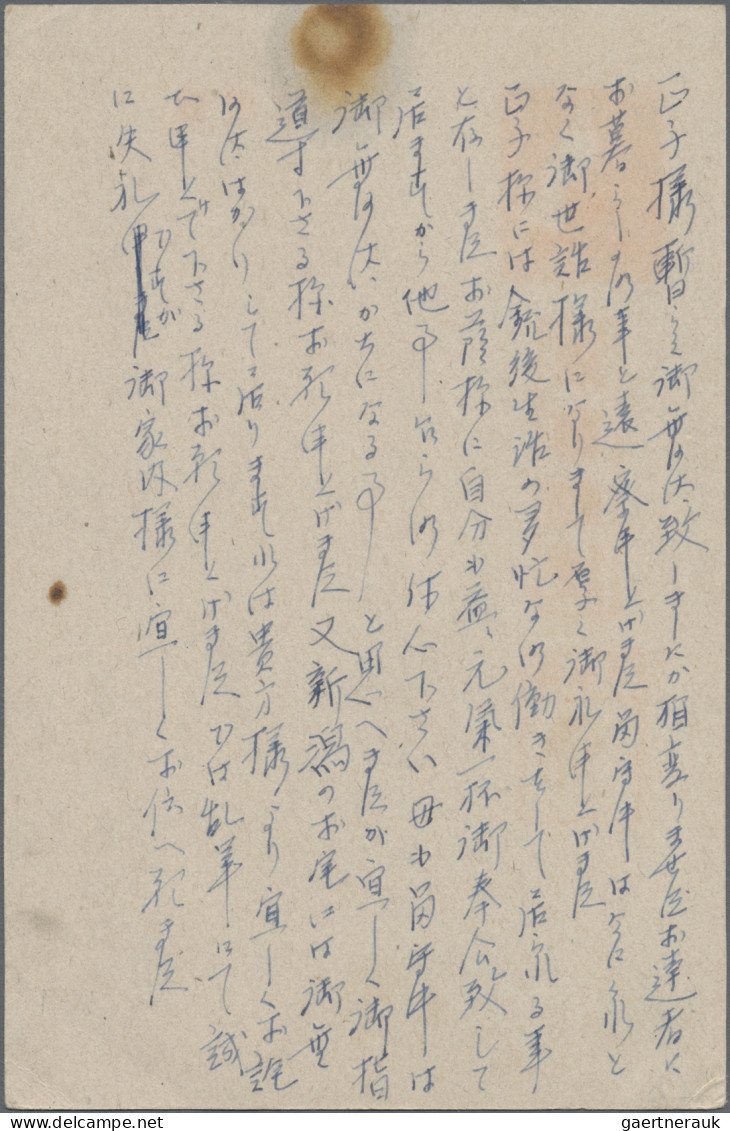 正子様暫らく御無沙汰致しましたが相変りませずお達者に
お暮らしの事と遠察申上げます 留守中は何に彼と
なく御世話様になりまして厚く御礼申上げます
正子様には銃後生活の多忙なる働きをして居られる事
と存じます お蔭様に自分も益々元氣一杯御奉公致して
居ますから他事乍ら御休心下さい 母も留守中は
御無沙汰がちになる事と思へますが宜しく御指
導下さる様お願申上げます 又新潟のお宅には御無
沙汰ばかりして居りますれば貴方様より宜しくお詫
び申上げて下さる様お願申上げます では乱筆にて 誠
に失礼ですが 御家内様に宜しくお伝へ願ます
gaertnerauk